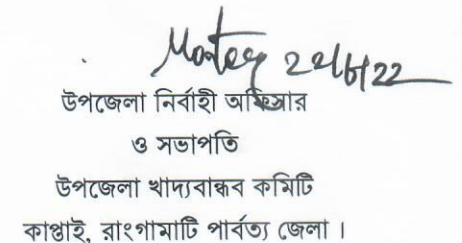 উপজেলা নির্বাহী অফিসার
ও সভাপতি
উপজেলা খাদ্যবান্ধব কমিটি
কাপ্তাই, রাংগামাটি পার্বত্য জেলা ।